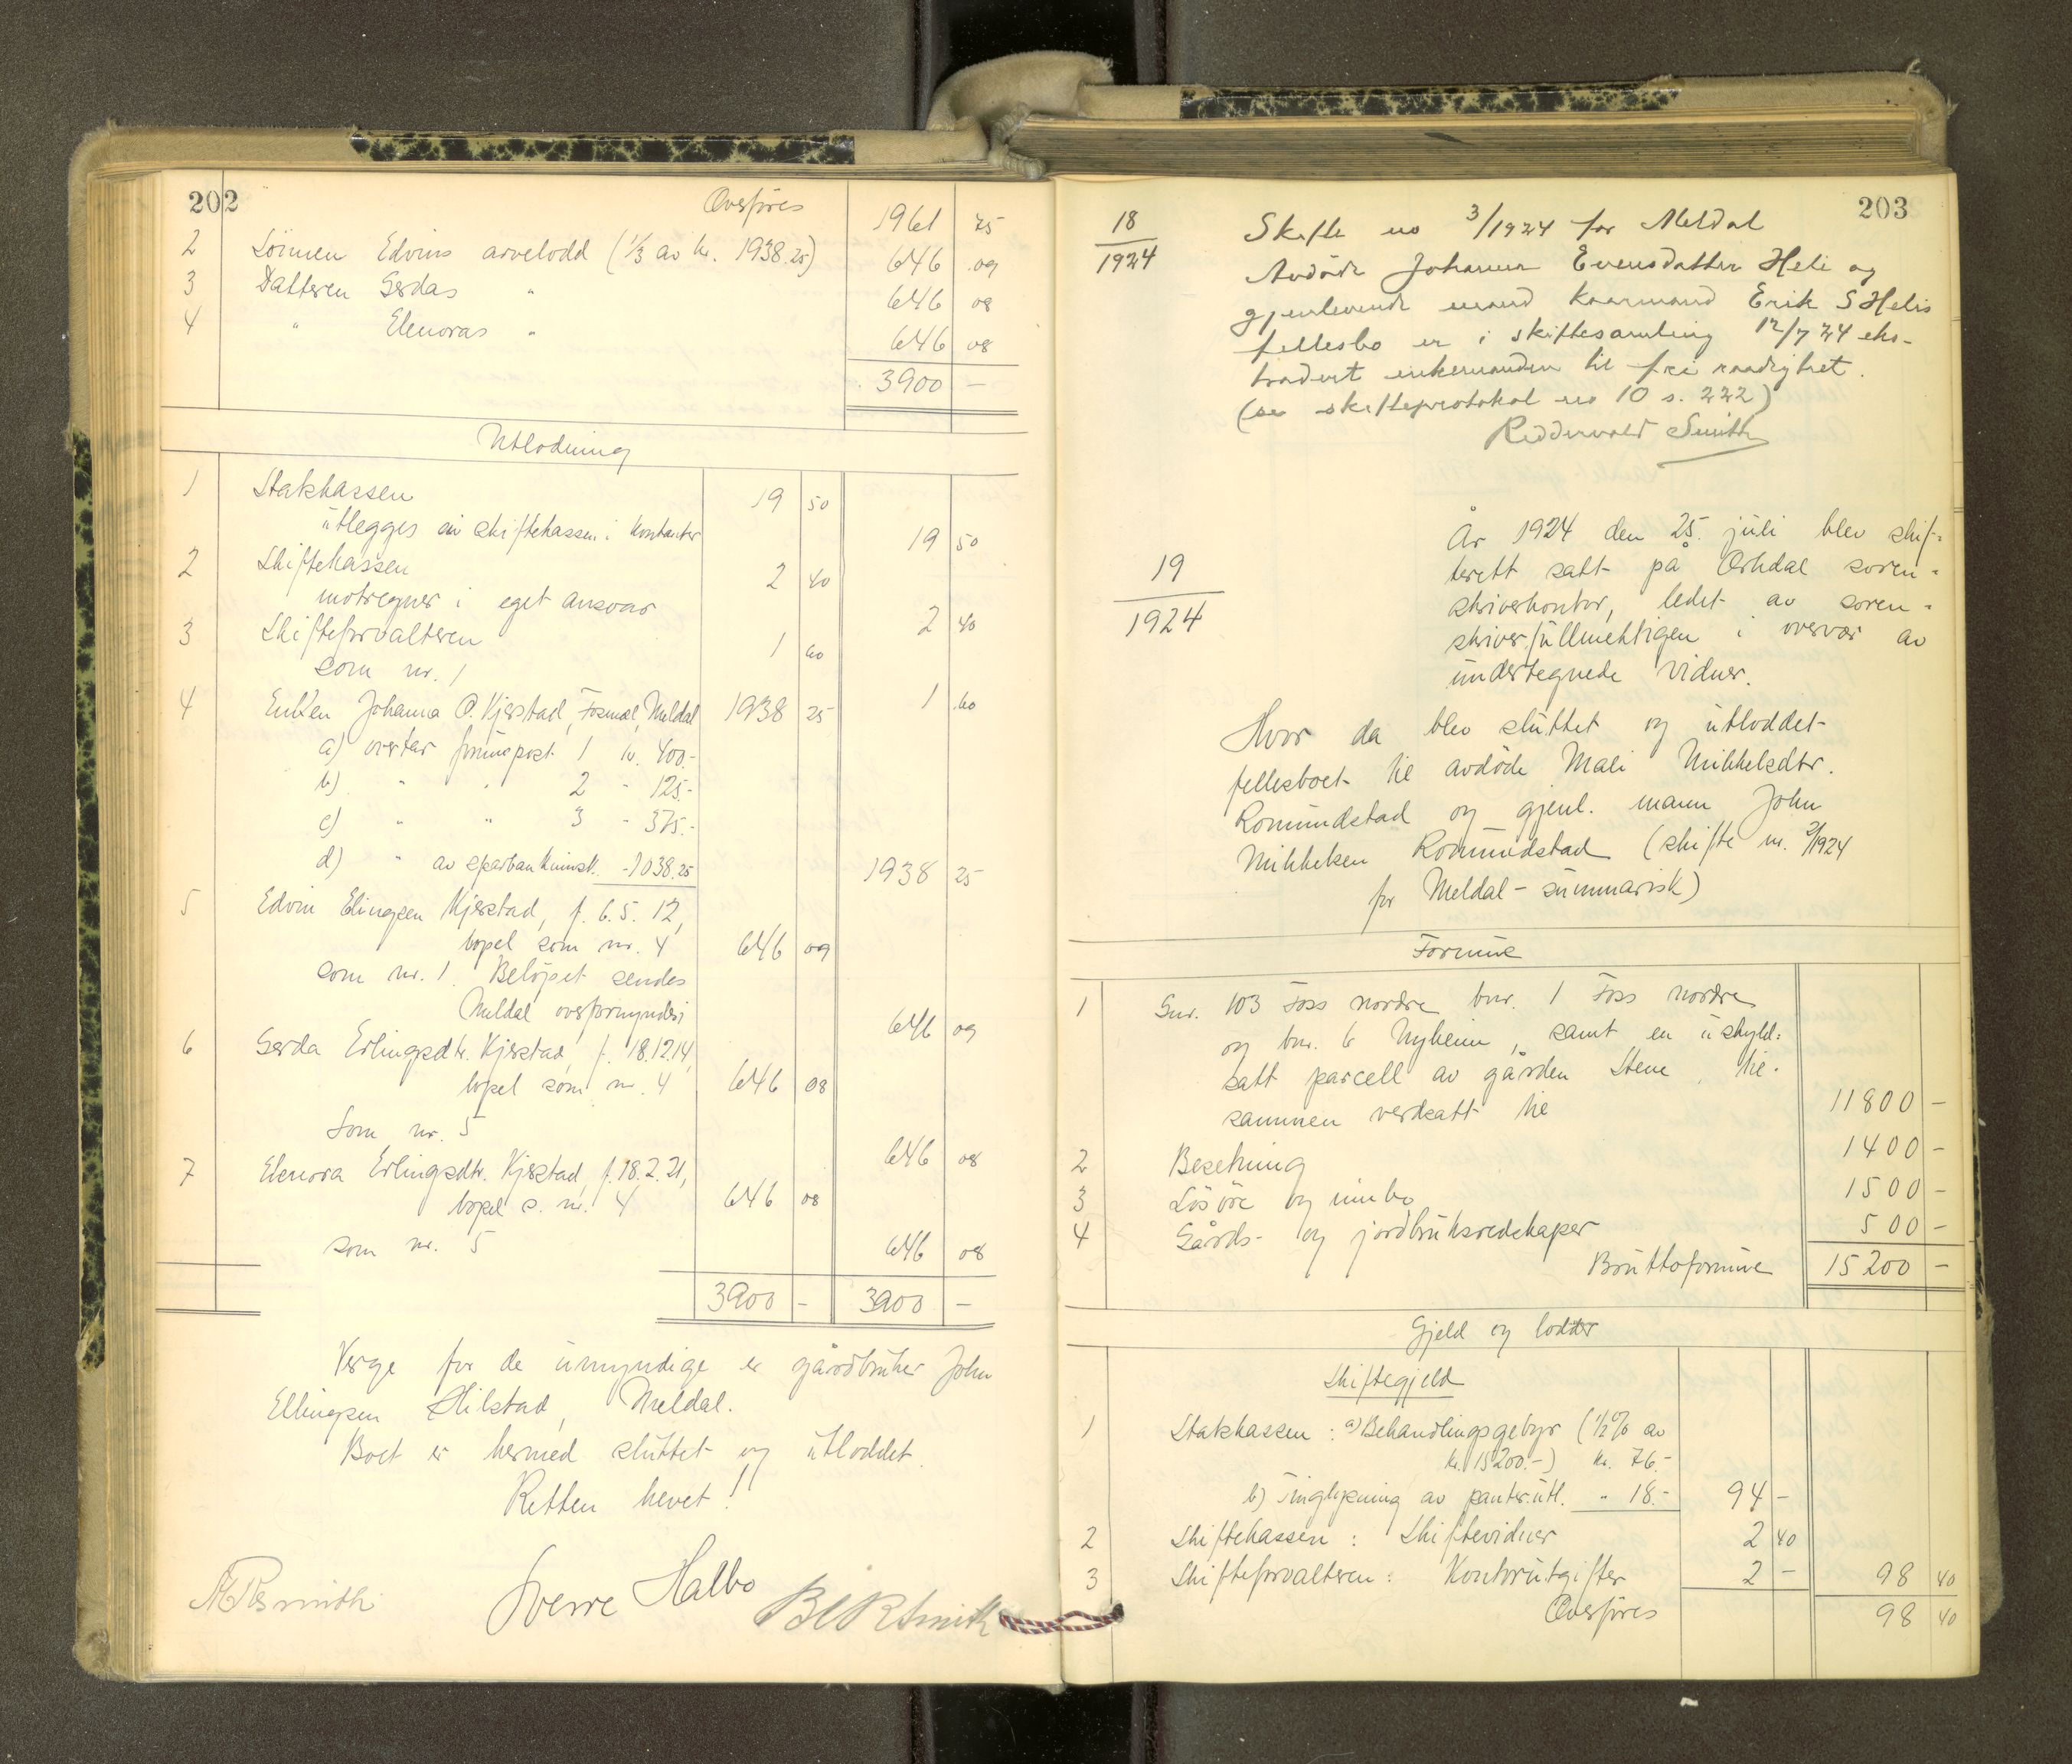 202
Overføres 1961 25
2 Sönnen Edvins arvelodd (1/3 av kr. 1938.25) 646 09
3 Datteren Gerdas " 646 08
4 " Elenoras " 646 08
3900 –
Utlodning
1 Statskassen 19 50
utlegges av skiftekassen i kontanter 19 50
2 Skiftekassen 2 40
motregner i eget ansvar 2 40
3 Skifteforvalteren 1 60
som nr. 1 1 60
4 Enken Johanna O. Kjerstad, Fosmoel, Meldal 1938 25
a) overtar formuepost 1 kr. 400.-
b) " " 2 " 125.-
c) " " 3 " 375.-
d) " av sparbankinnsk. - 1038.25 1938 25
5 Edvin Elingsen Kjerstad, f. 6.5.12,
bopel som nr. 4 646 09
som nr. 1. Belöpet sendes
Meldal overformynderi 646 09
6 Gerda Erlingsdtr. Kjerstad, f. 18.12.14,
bopel som nr. 4 646 08
Som nr. 5 646 08
7 Elenora Erlingsdtr. Kjerstad, f. 18.2.21,
bopel s. nr. 4 646 08
som nr. 5 646 08
3900 – 3900 –
Verge for de umyndige er gårdbruker John
Ellingsen Hilstad, Meldal.
Boet er hermed sluttet og utloddet.
Retten hevet!
Sverre Halbo
203
18
1924
Skifte no 3/1924 for Meldal
Avdöde Johanna Evensdatter Heli og
gjenlevende mand kaarmand Erik S Helis
fellesbo er i skiftesamling 12/7 24 eks-
tradert enkemanden til fri raadighet.
(se skifteprotokol no 10 s. 222)
Reddervold Smith
19
1924
År 1924 den 25. juli blev skif-
terett satt på Orkdal soren-
skriverkontor, ledet av soren-
skriverfullmektigen i overvær av
undertegnede vidner.
Hvor da blev sluttet og utloddet
fellesboet til avdöde Mali Mikkelsdtr.
Romundstad og gjenl. mann John
Mikkelsen Romundstad (skifte nr. 2/1924
for Meldal – summarisk)
Formue
1 Gnr. 103 Foss nordre bnr. 1 Foss nordre
og bnr. 6 Nyheim, samt en uskyld-
satt parcell av gården Stene, til-
sammen verdsatt til 11800 –
2 Besetning 1400 –
3 Lösöre og innbo 1500 –
4 Gårds- og jordbruksredskaper 500 –
Bruttoformue 15200 –
Gjeld og lodder
Skiftegjeld
1 Statskassen: a) Behandlingsgebyr (1/2% av
kr. 15200.–) kr. 76.-
b) Tinglysning av panter.utl. " 18.- 94 –
2 Skiftekassen: Skiftevidner 2 40
3 Skifteforvalteren: Kontorutgifter 2 – 98 40
Overføres 98 40